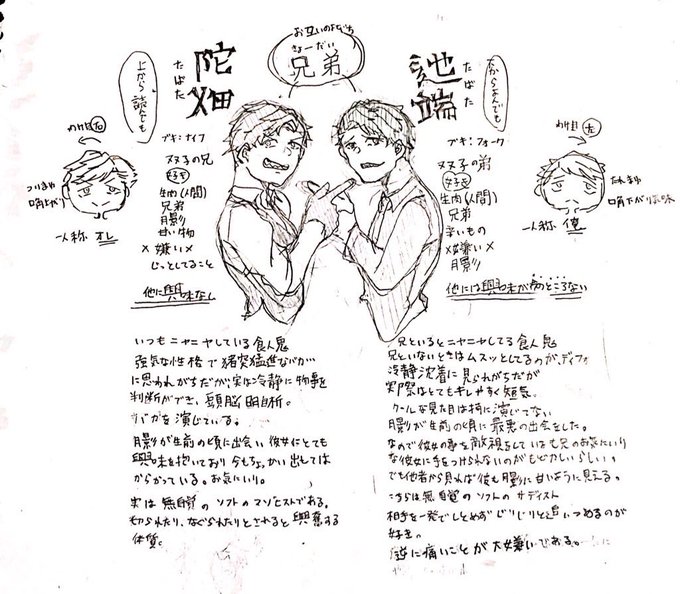 お互いのよび方
きょーだい
兄弟
陀畑
たばた
上から読んでも
わけ目 右
つりまゆ
口角上がり
一人称 オレ
ブキ:ナイフ
双子の兄
好き
生肉(人間)
兄弟
月影り
甘い物
×嫌い×
じっとしてること
他に興味なし
池端
たばた
ブキ:フォーク
双子の弟
好き
生肉(人間)
兄弟
辛いもの
×嫌い×
月影り
他には興味が今のところない
わけ目 左
たれまゆ
口角下がり気味
一人称 俺
いつもニヤニヤしている食人鬼
強気な性格で猪突猛進なバカ…
に思われがちだが、実は冷静に物事を
判断ができ、頭脳明晰。
バカを演じている。
月影が生前の頃に出会い彼女にとても
興味を抱いており今もちょっかい出しては
からかっている。お気にいり。
実は無自覚のソフトのマゾヒストである。
切られたり、なぐられたりとされると興奮する
体質。
兄といるとニヤニヤしてる食人鬼
兄といないときはムスッとしてるのが、ディフォ
冷静沈着に見られがちだが
実際はとてもキレやすく短気。
クールな見た目は特に演じてない
月影が生前の頃に最悪の出会をした。
なので彼女の事を敵視をしているも兄のお気にいり
な彼女に手をつけられないのがもどかしいらしい。
でも他者から見れば彼も月影に甘いように見える。
こちらは無自覚のソフトのサディスト
相手を一発でしとめずじりじりと追いつめるのが
好き。
逆に痛いことが大嫌いである。